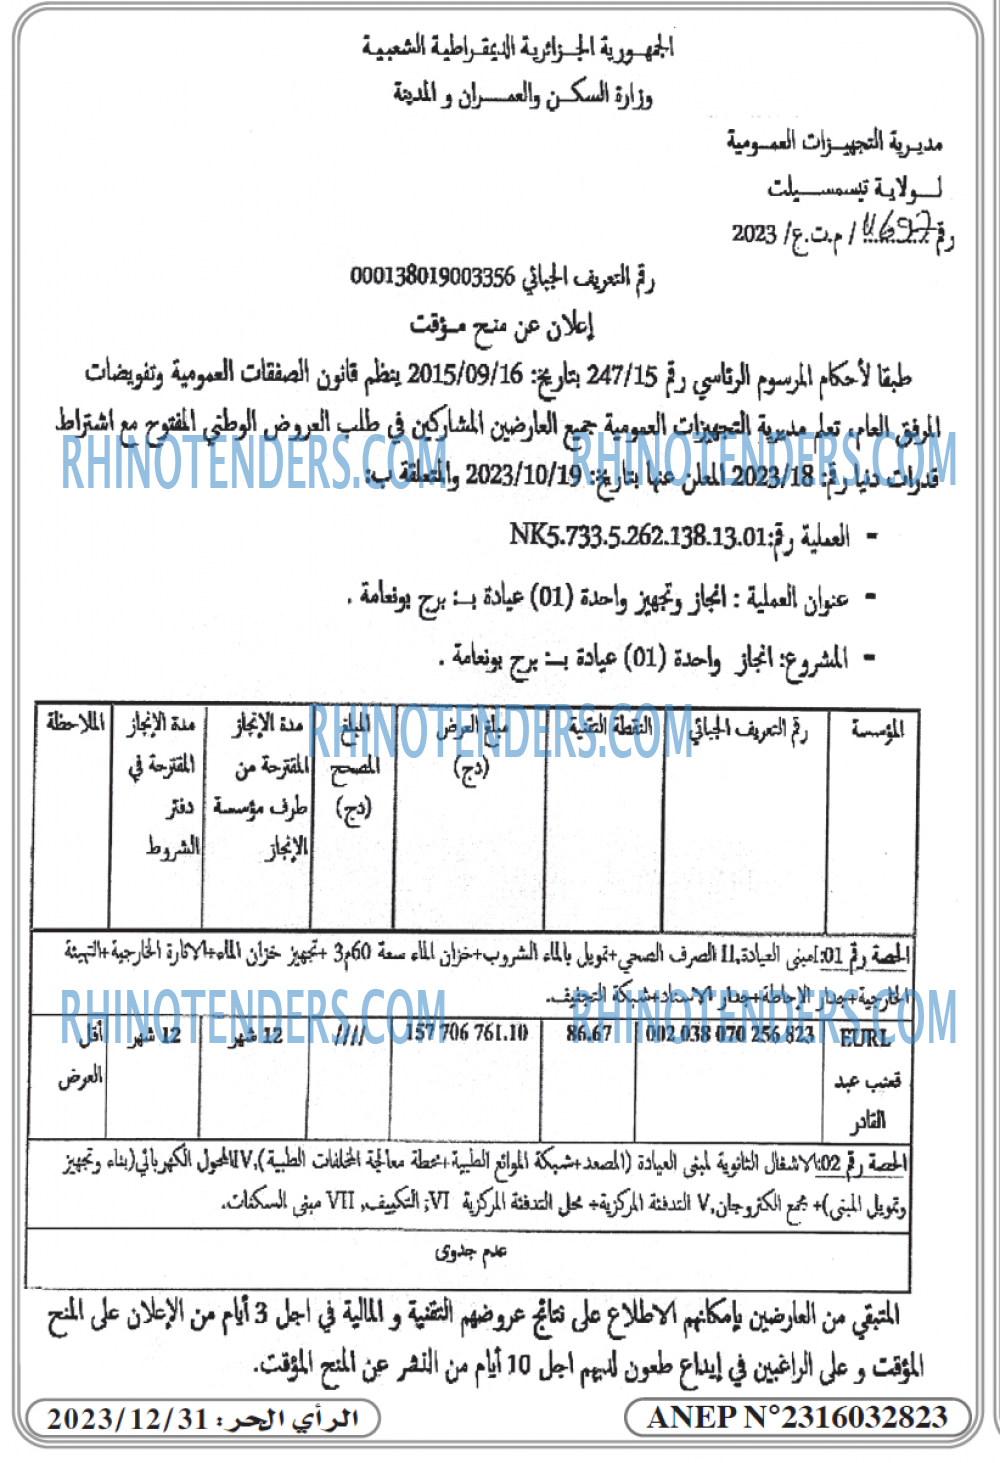 الجمهورية الجزائرية الديمقراطية الشعبية
وزارة السكن والعمران و المدينة
مديرية التجهيزات العمومية
لولاية تيسمسيلت
رقم / م.ت.ع/ 2023
رقم التعريف الجبائي 000138019003356
إعلان عن منح مؤقت
طبقا لأحكام المرسوم الرئاسي رقم 247/15 بتاريخ: 2015/09/16 ينظم قانون الصفقات العمومية وتفويضات
المرفق العام، تعلم مديرية التجهيزات العمومية جميع العارضين المشاركين في طلب العروض الوطني المفتوح مع اشتراط
RHINOTENDERS.COM RHINOTENDERS.COM
قدرات دنيا رقم: 2023/18 المعلن عنها بتاريخ: 2023/10/19 والمتعلقة ب:
- العملية رقم:NK5.733.5.262.138.13.01
- عنوان العملية : انجاز وتجهيز واحدة (01) عيادة بـ: برج بونعامة .
- المشروع: انجاز واحدة (01) عيادة بـ: برج بونعامة .
RHINOTENDERS.COM
المؤسسة
رقم التعريف الجبائي
النقطة التقنية
مبلغ العرض
(دج)
المبلغ
المصحح
(دج)
مدة الإنجاز
المقترحة من
طرف مؤسسة
الإنجاز
مدة الإنجاز
المقترحة في
دفتر
الشروط
الملاحظة
الحصة رقم 01:I مبنى العيادة,II الصرف الصحي+تمويل بالماء الشروب+خزان الماء سعة 60م3 +تجهيز خزان الماء+الانارة الخارجية+التهيئة
الخارجية+جدار الإحاطة+جدار الاسناد+شبكة التجفيف.
RHINOTENDERS.COM RHINOTENDERS.COM
EURL
قعنب عبد
القادر
002 038 070 256 823
86.67
157 706 761.10
////
12 شهر
12 شهر
أقل
العرض
الحصة رقم 02: الاشغال الثانوية لمبنى العيادة (المصعد+شبكة الموائع الطبية+محطة معالجة المخلفات الطبية),IV المحول الكهربائي(بناء وتجهيز
وتمويل المبنى)+ مجمع الكتروجان,V التدفئة المركزية+ محل التدفئة المركزية VI; التكييف, VII مبنى السكنات.
عدم جدوى
المتبقي من العارضين بإمكانهم الاطلاع على نتائج عروضهم التقنية و المالية في اجل 3 أيام من الإعلان على المنح
المؤقت و على الراغبين في إيداع طعون لديهم اجل 10 أيام من النشر عن المنح المؤقت.
الرأي الحر: 2023/12/31
ANEP N°2316032823